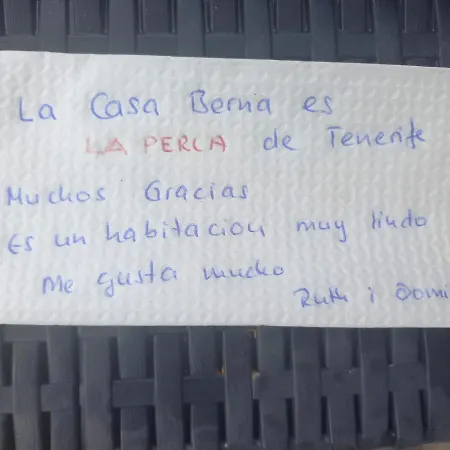 La Casa Bernia es
LA PERLA de Tenerife
Muchos Gracias
Es un habitacion muy lindo
Me gusta mucho
Ruth i Domi